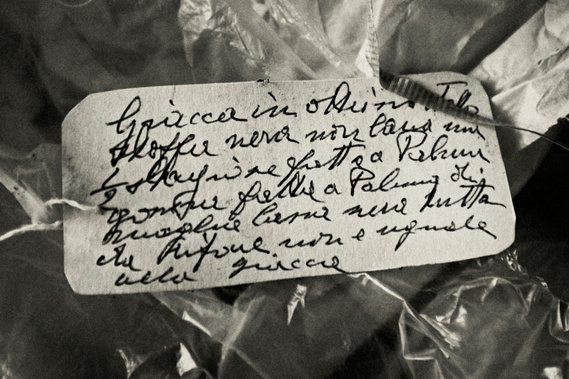 Giacca in ottimo stato
stoffa nera non lana ma
fatta a Palma
gonna fatta a Palma di
maglia lana nera tutta
da rifare non è uguale
alla giacca